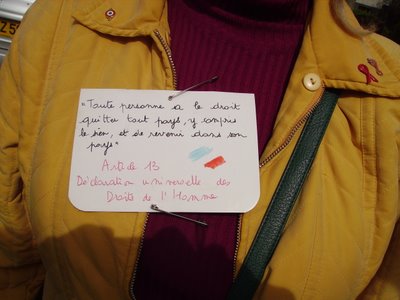 "Toute personne a le droit
quitter tout pays, y compris
le sien, et de revenir dans son
pays"
Article 13
Déclaration universelle des
Droits de l'Homme